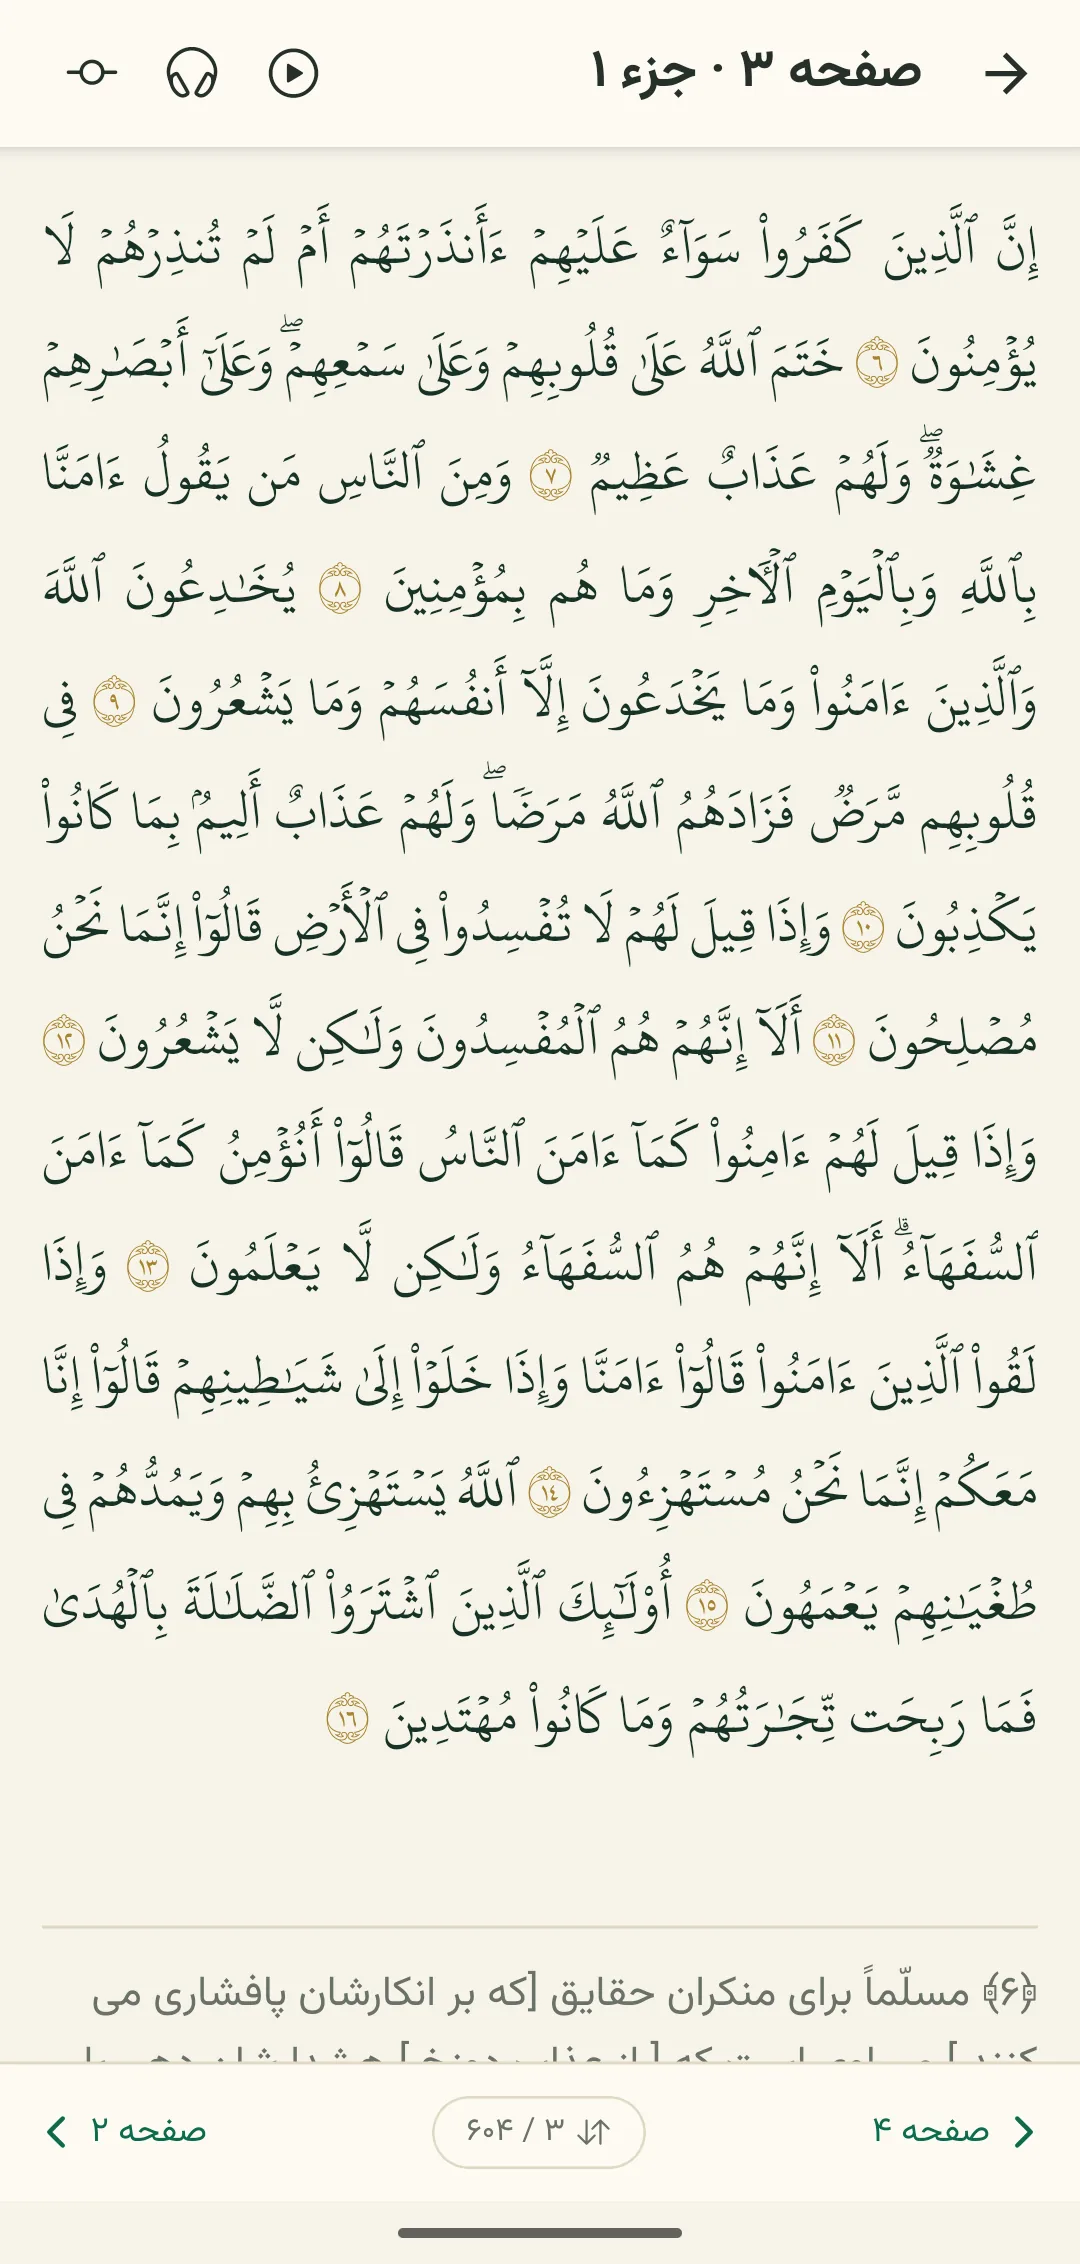 صفحه ۳ · جزء ۱
إِنَّ ٱلَّذِينَ كَفَرُوا۟ سَوَآءٌ عَلَيْهِمْ ءَأَنذَرْتَهُمْ أَمْ لَمْ تُنذِرْهُمْ لَا
يُؤْمِنُونَ ٦ خَتَمَ ٱللَّهُ عَلَىٰ قُلُوبِهِمْ وَعَلَىٰ سَمْعِهِمْ ۖ وَعَلَىٰٓ أَبْصَـٰرِهِمْ
غِشَـٰوَةٌ ۖ وَلَهُمْ عَذَابٌ عَظِيمٌ ٧ وَمِنَ ٱلنَّاسِ مَن يَقُولُ ءَامَنَّا
بِٱللَّهِ وَبِٱلْيَوْمِ ٱلْـَٔاخِرِ وَمَا هُم بِمُؤْمِنِينَ ٨ يُخَـٰدِعُونَ ٱللَّهَ
وَٱلَّذِينَ ءَامَنُوا۟ وَمَا يَخْدَعُونَ إِلَّآ أَنفُسَهُمْ وَمَا يَشْعُرُونَ ٩ فِى
قُلُوبِهِم مَّرَضٌ فَزَادَهُمُ ٱللَّهُ مَرَضًا ۖ وَلَهُمْ عَذَابٌ أَلِيمٌۢ بِمَا كَانُوا۟
يَكْذِبُونَ ١٠ وَإِذَا قِيلَ لَهُمْ لَا تُفْسِدُوا۟ فِى ٱلْأَرْضِ قَالُوٓا۟ إِنَّمَا نَحْنُ
مُصْلِحُونَ ١١ أَلَآ إِنَّهُمْ هُمُ ٱلْمُفْسِدُونَ وَلَـٰكِن لَّا يَشْعُرُونَ ١٢
وَإِذَا قِيلَ لَهُمْ ءَامِنُوا۟ كَمَآ ءَامَنَ ٱلنَّاسُ قَالُوٓا۟ أَنُؤْمِنُ كَمَآ ءَامَنَ
ٱلسُّفَهَآءُ ۗ أَلَآ إِنَّهُمْ هُمُ ٱلسُّفَهَآءُ وَلَـٰكِن لَّا يَعْلَمُونَ ١٣ وَإِذَا
لَقُوا۟ ٱلَّذِينَ ءَامَنُوا۟ قَالُوٓا۟ ءَامَنَّا وَإِذَا خَلَوْا۟ إِلَىٰ شَيَـٰطِينِهِمْ قَالُوٓا۟ إِنَّا
مَعَكُمْ إِنَّمَا نَحْنُ مُسْتَهْزِءُونَ ١٤ ٱللَّهُ يَسْتَهْزِئُ بِهِمْ وَيَمُدُّهُمْ فِى
طُغْيَـٰنِهِمْ يَعْمَهُونَ ١٥ أُو۟لَـٰٓئِكَ ٱلَّذِينَ ٱشْتَرَوُا۟ ٱلضَّلَـٰلَةَ بِٱلْهُدَىٰ
فَمَا رَبِحَت تِّجَـٰرَتُهُمْ وَمَا كَانُوا۟ مُهْتَدِينَ ١٦
﴿۶﴾ مسلّماً برای منکران حقایق [که بر انکارشان پافشاری می
صفحه ۴
۳ / ۶۰۴
صفحه ۲